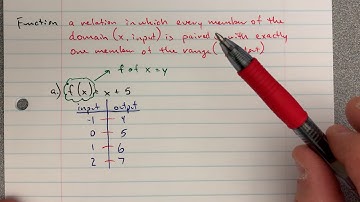 Function a relation in which every member of the
domain (x, input) is paired with exactly
one member of the range (
f of x = y
a) f(x) = x + 5
input output
-1 4
0 5
1 6
2 7